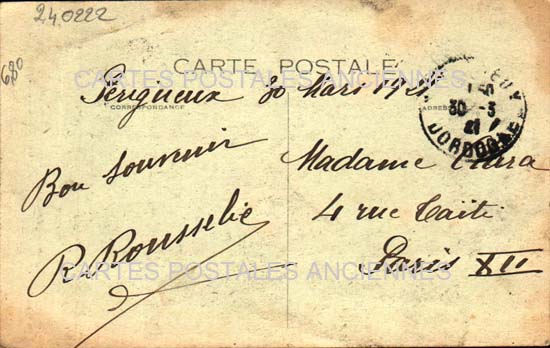 240222
680
CARTE POSTALE
CARTES POSTALES ANCIENNES
Perigueux 30 Mars 1921
CORRESPONDANCE
30 -3
21
DORDOGNE
Bon Souvenir
Madame
4 rue
R. Rousselie
Paris XII
CARTES POSTALES ANCIENNES